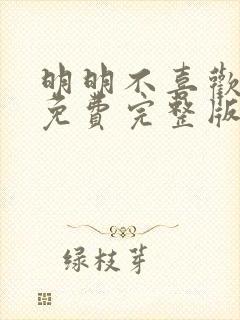 明明不喜歡
免費完整版
绿枝芽